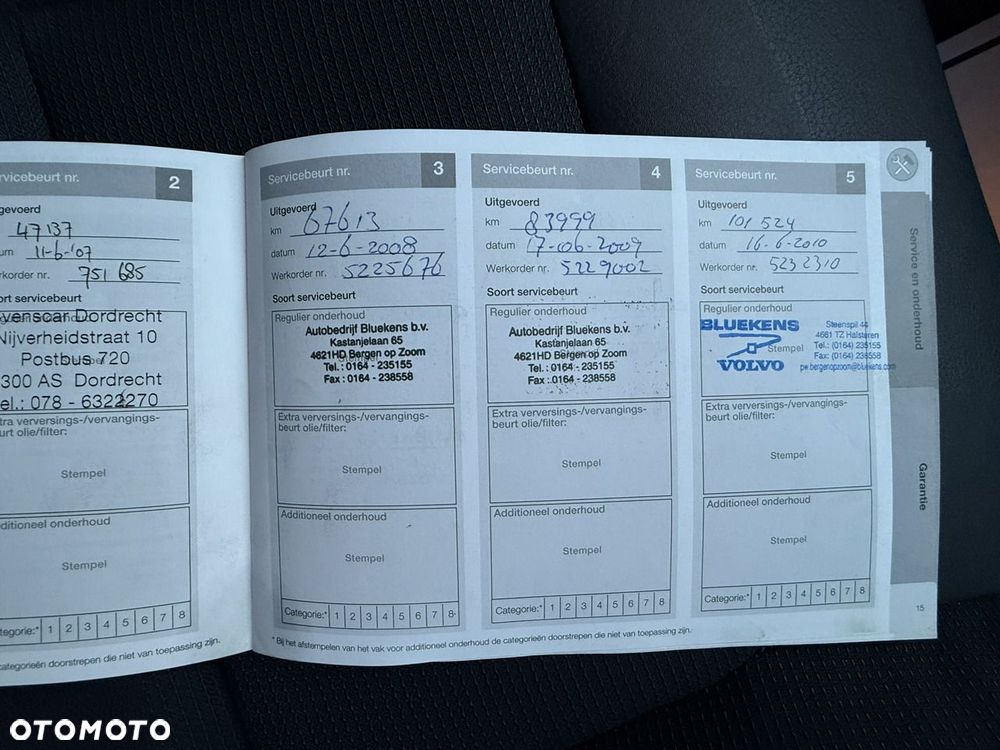 rvicebeurt nr. 2
tgevoerd
47137
um 11-6-'07
rkorder nr. 751 685
ort servicebeurt
venscar Dordrecht
Nijverheidstraat 10
Postbus 720
300 AS Dordrecht
el.: 078 - 6322270
tra verversings-/vervangings-
urt olie/filter:
Stempel
dditioneel onderhoud
Stempel
tegorie:* 1 2 3 4 5 6 7 8
categorieën doorstrepen die niet van toepassing zijn.
Servicebeurt nr. 3
Uitgevoerd
km 67613
datum 12-6-2008
Werkorder nr. 5225676
Soort servicebeurt
Regulier onderhoud
Autobedrijf Bluekens b.v.
Kastanjelaan 65
4621HD Bergen op Zoom
Tel.: 0164 - 235155
Fax : 0164 - 238558
Extra verversings-/vervangings-
beurt olie/filter:
Stempel
Additioneel onderhoud
Stempel
Categorie:* 1 2 3 4 5 6 7 8
Servicebeurt nr. 4
Uitgevoerd
km 83999
datum 17-06-2009
Werkorder nr. 5229002
Soort servicebeurt
Regulier onderhoud
Autobedrijf Bluekens b.v.
Kastanjelaan 65
4621HD Bergen op Zoom
Tel.: 0164 - 235155
Fax : 0164 - 238558
Extra verversings-/vervangings-
beurt olie/filter:
Stempel
Additioneel onderhoud
Stempel
Categorie:* 1 2 3 4 5 6 7 8
Servicebeurt nr. 5
Uitgevoerd
km 101 524
datum 16-6-2010
Werkorder nr. 5232310
Soort servicebeurt
Regulier onderhoud
BLUEKENS
VOLVO
Stempel
Steenspil 44
4661 TZ Halsteren
Tel.: (0164) 235155
Fax: (0164) 238558
pw.bergenopzoom@bluekens.com
Extra verversings-/vervangings-
beurt olie/filter:
Stempel
Additioneel onderhoud
Stempel
Categorie:* 1 2 3 4 5 6 7 8
* Bij het afstempelen van het vak voor additioneel onderhoud de categorieën doorstrepen die niet van toepassing zijn.
Service en onderhoud
Garantie
15
OTOMOTO